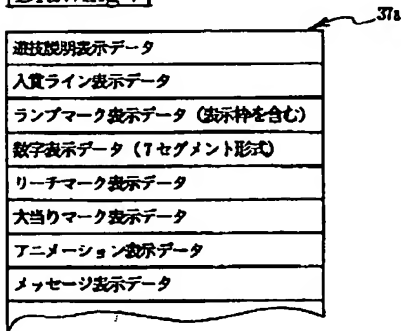 37a
遊技説明表示データ
入賞ライン表示データ
ランプマーク表示データ（表示枠を含む）
数字表示データ（7セグメント形式）
リーチマーク表示データ
大当りマーク表示データ
アニメーション表示データ
メッセージ表示データ